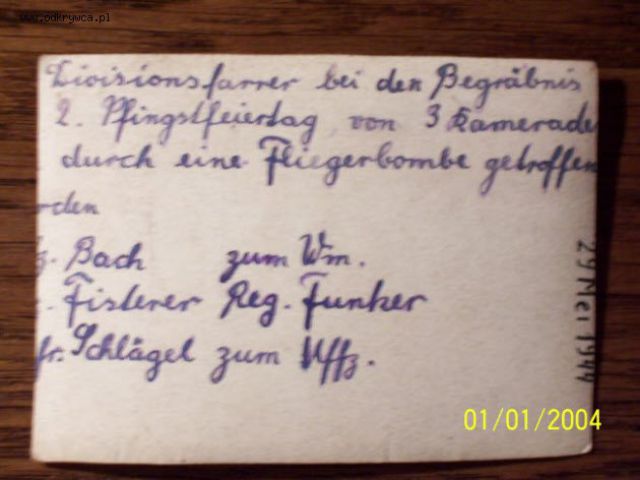 www.odkrywca.pl
Divisionsfarrer bei den Begräbnis
2. Pfingstfeiertag von 3 Kamerade
durch eine Fliegerbombe getroffen
rden
z. Bach zum Wm.
Fisterer Reg. Funker
fr. Schlägel zum Uffz.
29 Mei 1944
01/01/2004